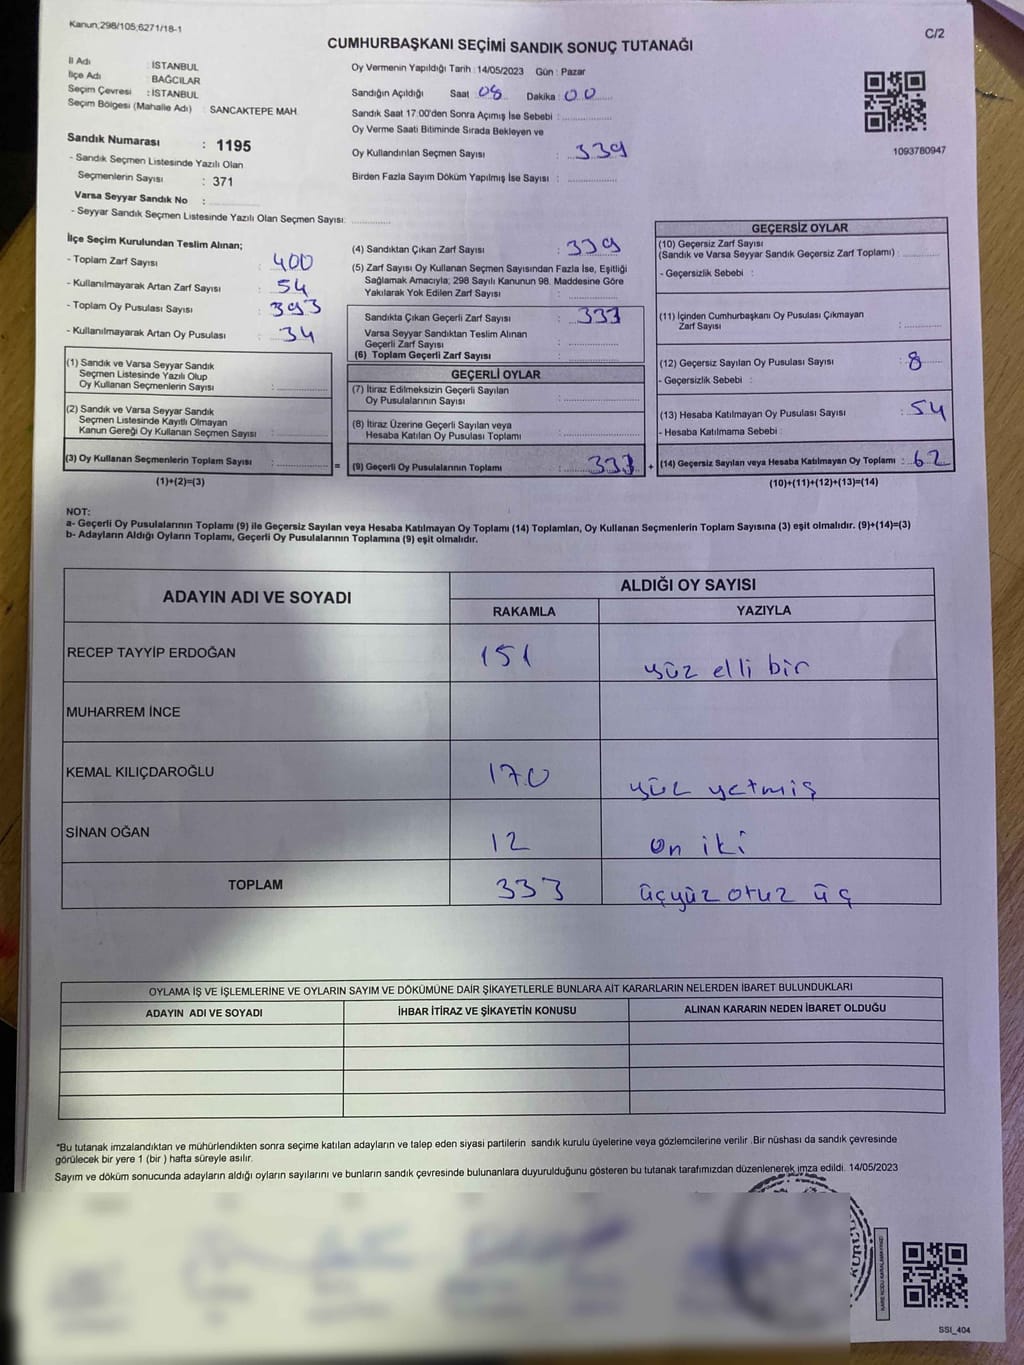 Kanun;298/105;6271/18-1
C/2
CUMHURBAŞKANI SEÇİMİ SANDIK SONUÇ TUTANAĞI
İl Adı : İSTANBUL
İlçe Adı : BAĞCILAR
Seçim Çevresi : İSTANBUL
Seçim Bölgesi (Mahalle Adı) : SANCAKTEPE MAH.
Sandık Numarası : 1195
- Sandık Seçmen Listesinde Yazılı Olan
Seçmenlerin Sayısı : 371
Varsa Seyyar Sandık No :
- Seyyar Sandık Seçmen Listesinde Yazılı Olan Seçmen Sayısı:
Oy Vermenin Yapıldığı Tarih : 14/05/2023 Gün : Pazar
Sandığın Açıldığı Saat : 08 Dakika : 00
Sandık Saat 17:00'den Sonra Açımış İse Sebebi :
Oy Verme Saati Bitiminde Sırada Bekleyen ve
Oy Kullandırılan Seçmen Sayısı : 339
Birden Fazla Sayım Döküm Yapılmış İse Sayısı :
1093780947
İlçe Seçim Kurulundan Teslim Alınan;
- Toplam Zarf Sayısı : 400
- Kullanılmayarak Artan Zarf Sayısı : 54
- Toplam Oy Pusulası Sayısı : 393
- Kullanılmayarak Artan Oy Pusulası : 34
(1) Sandık ve Varsa Seyyar Sandık
Seçmen Listesinde Yazılı Olup
Oy Kullanan Seçmenlerin Sayısı :
(2) Sandık ve Varsa Seyyar Sandık
Seçmen Listesinde Kayıtlı Olmayan
Kanun Gereği Oy Kullanan Seçmen Sayısı :
(3) Oy Kullanan Seçmenlerin Toplam Sayısı :
(1)+(2)=(3)
=
(4) Sandıktan Çıkan Zarf Sayısı : 339
(5) Zarf Sayısı Oy Kullanan Seçmen Sayısından Fazla İse, Eşitliği
Sağlamak Amacıyla, 298 Sayılı Kanunun 98. Maddesine Göre
Yakılarak Yok Edilen Zarf Sayısı :
Sandıkta Çıkan Geçerli Zarf Sayısı : 333
Varsa Seyyar Sandıktan Teslim Alınan
Geçerli Zarf Sayısı :
(6) Toplam Geçerli Zarf Sayısı :
GEÇERLİ OYLAR
(7) İtiraz Edilmeksizin Geçerli Sayılan
Oy Pusulalarının Sayısı :
(8) İtiraz Üzerine Geçerli Sayılan veya
Hesaba Katılan Oy Pusulası Toplamı :
(9) Geçerli Oy Pusulalarının Toplamı : 333
+
GEÇERSİZ OYLAR
(10) Geçersiz Zarf Sayısı
(Sandık ve Varsa Seyyar Sandık Geçersiz Zarf Toplamı) :
- Geçersizlik Sebebi :
(11) İçinden Cumhurbaşkanı Oy Pusulası Çıkmayan
Zarf Sayısı :
(12) Geçersiz Sayılan Oy Pusulası Sayısı : 8
- Geçersizlik Sebebi :
(13) Hesaba Katılmayan Oy Pusulası Sayısı : 54
- Hesaba Katılmama Sebebi :
(14) Geçersiz Sayılan veya Hesaba Katılmayan Oy Toplamı : 62
(10)+(11)+(12)+(13)=(14)
NOT:
a- Geçerli Oy Pusulalarının Toplamı (9) ile Geçersiz Sayılan veya Hesaba Katılmayan Oy Toplamı (14) Toplamları, Oy Kullanan Seçmenlerin Toplam Sayısına (3) eşit olmalıdır. (9)+(14)=(3)
b- Adayların Aldığı Oyların Toplamı, Geçerli Oy Pusulalarının Toplamına (9) eşit olmalıdır.
ADAYIN ADI VE SOYADI
ALDIĞI OY SAYISI
RAKAMLA YAZIYLA
RECEP TAYYİP ERDOĞAN 151 yüz elli bir
MUHARREM İNCE
KEMAL KILIÇDAROĞLU 170 yüz yetmiş
SİNAN OĞAN 12 on iki
TOPLAM 333 üçyüz otuz üç
OYLAMA İŞ VE İŞLEMLERİNE VE OYLARIN SAYIM VE DÖKÜMÜNE DAİR ŞİKAYETLERLE BUNLARA AİT KARARLARIN NELERDEN İBARET BULUNDUKLARI
ADAYIN ADI VE SOYADI İHBAR İTİRAZ VE ŞİKAYETİN KONUSU ALINAN KARARIN NEDEN İBARET OLDUĞU
*Bu tutanak imzalandıktan ve mühürlendikten sonra seçime katılan adayların ve talep eden siyasi partilerin sandık kurulu üyelerine veya gözlemcilerine verilir .Bir nüshası da sandık çevresinde
görülecek bir yere 1 (bir ) hafta süreyle asılır.
Sayım ve döküm sonucunda adayların aldığı oyların sayılarını ve bunların sandık çevresinde bulunanlara duyurulduğunu gösteren bu tutanak tarafımızdan düzenlenerek imza edildi. 14/05/2023
SSİ_404